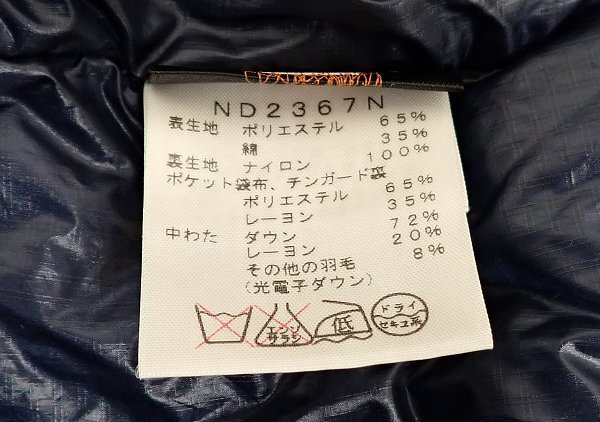 ND2367N
表生地 ポリエステル 65%
綿 35%
裏生地 ナイロン 100%
ポケット袋布、チンガード裏
ポリエステル 65%
レーヨン 35%
中わた ダウン 72%
レーヨン 20%
その他の羽毛 8%
(光電子ダウン)
エンソ サラシ
低
ドライ セキユ系